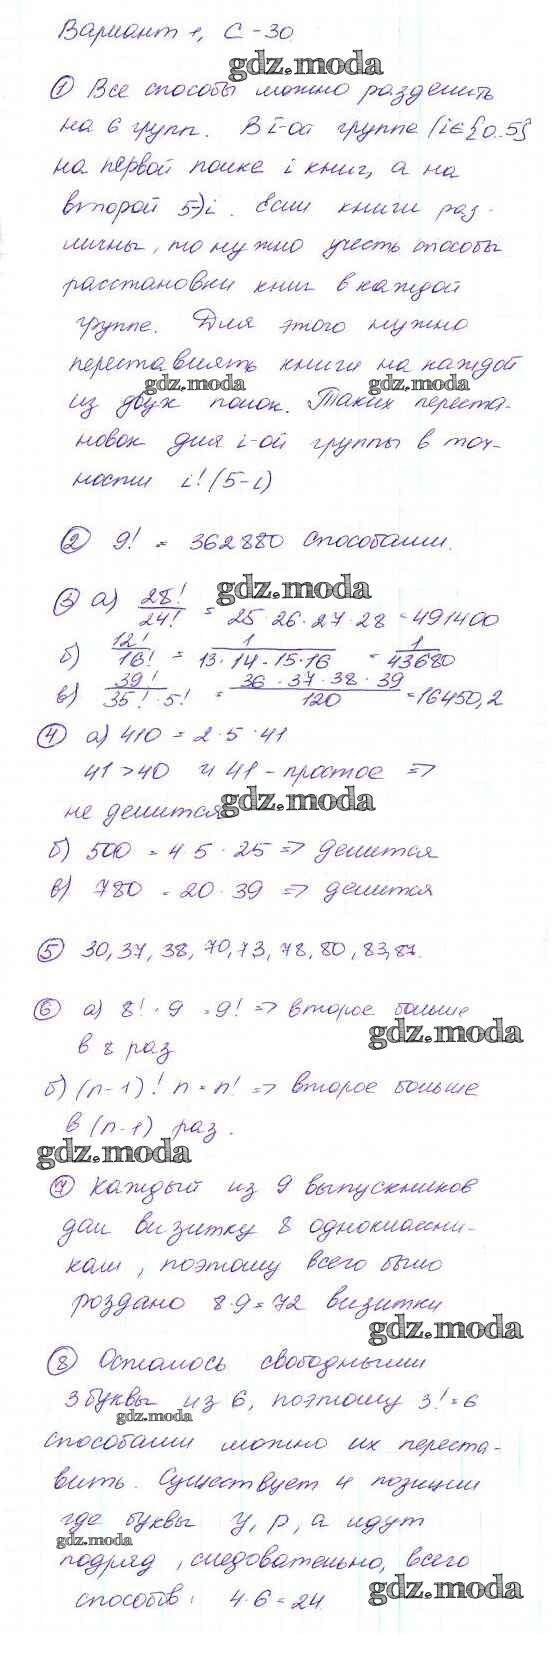 Вариант 1, С-30
gdz.moda
① Все способы можно разделить
на 6 групп. В i-ой группе (i∈{0..5}
на первой полке i книг, а на
второй 5-i. Если книги раз-
личны, то нужно учесть способы
расстановки книг в каждой
группе. Для этого нужно
переставлять книги на каждой
gdz.moda gdz.moda
из двух полок. Таких переста-
новок для i-ой группы в точ-
ности i! (5-i)
② 9! = 362880 способами.
gdz.moda
③ а) 28!/24! = 25·26·27·28 = 491400
б) 12!/16! = 1/13·14·15·16 = 1/43680
в) 39!/35!·5! = 36·37·38·39/120 = 16450,2
④ а) 410 = 2·5·41
41>40 и 41 - простое =>
не делится
gdz.moda
б) 500 = 45·25 => делится
в) 780 = 20·39 => делится
⑤ 30, 37, 38, 70, 73, 78, 80, 83, 87.
⑥ а) 8!·9 = 9! => второе больше
gdz.moda
в 8 раз
б) (n-1)! n = n! => второе больше
в (n-1) раз.
gdz.moda
⑦ каждый из 9 выпускников
дал визитку 8 одноклассни-
кам, поэтому всего было
роздано 8·9=72 визитки
gdz.moda
⑧ Осталось свободными
3 буквы из 6, поэтому 3!=6
gdz.moda
способами можно их переста-
вить. Существует 4 позиции
где буквы у, р, а идут
gdz.moda
подряд, следовательно, всего
gdz.moda
способов: 4·6=24.